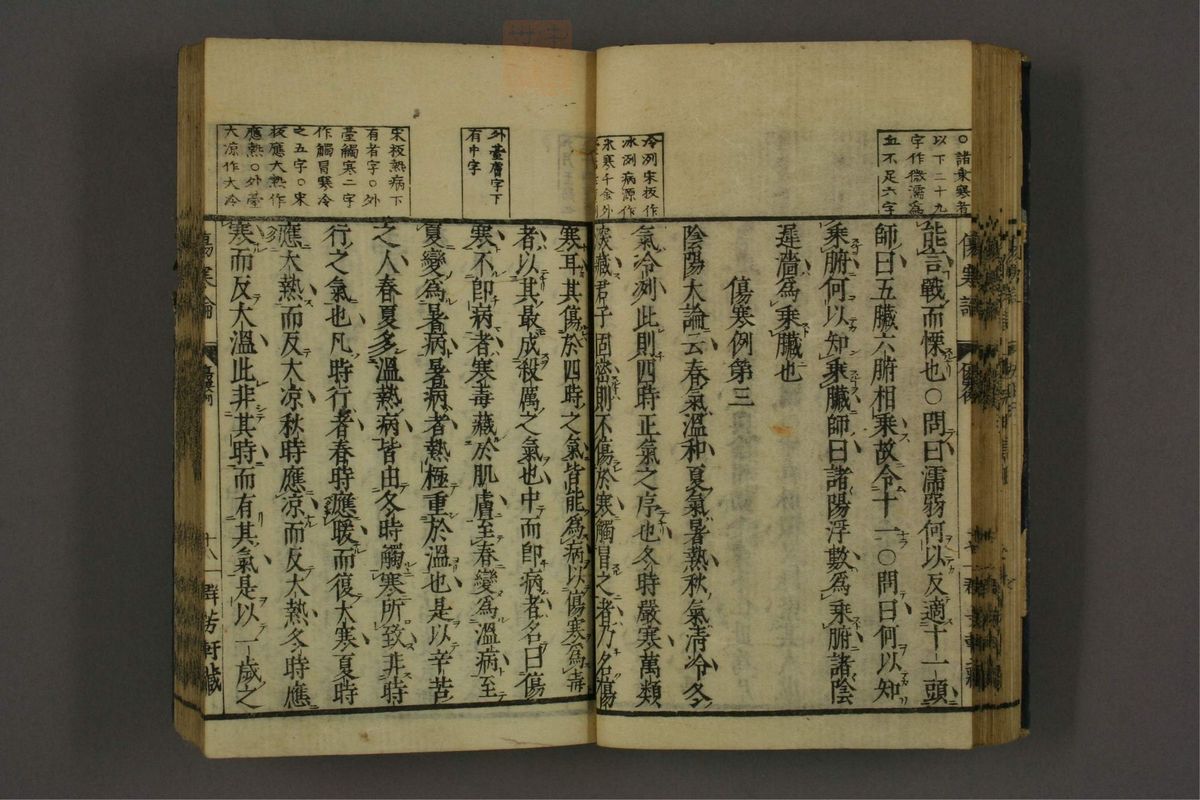 ○諸乘寒者
以下二十九
字作微濡為
血不足六字
能言戰而慄也○問曰濡弱何以反適十一頭
師曰五臟六腑相乘故令十一○問曰何以知
乘腑何以知乘臟師曰諸陽浮數為乘腑諸陰
遲濇為乘臟也
傷寒例第三
陰陽大論云春氣溫和夏氣暑熱秋氣清冷冬
氣冷冽此則四時正氣之序也冬時嚴寒萬類
深藏君子固密則不傷於寒觸冒之者乃名傷
冷冽宋板作
冰冽病源作
氷寒千金外
外臺膚字下
有中字
宋板熱病下
有者字○外
臺觸寒二字
作觸冒寒冷
之五字○宋
板應大熱作
應熱○外臺
大凉作大冷
寒耳其傷於四時之氣皆能為病以傷寒為毒
者以其最成殺厲之氣也中而即病者名曰傷
寒不即病者寒毒藏於肌膚至春變為溫病至
夏變為暑病暑病者熱極重於溫也是以辛苦
之人春夏多溫熱病皆由冬時觸寒所致非時
行之氣也凡時行者春時應暖而復大寒夏時
應大熱而反大凉秋時應凉而反大熱冬時應
寒而反大溫此非其時而有其氣是以一歲之
傷寒論
十八
群芳軒藏